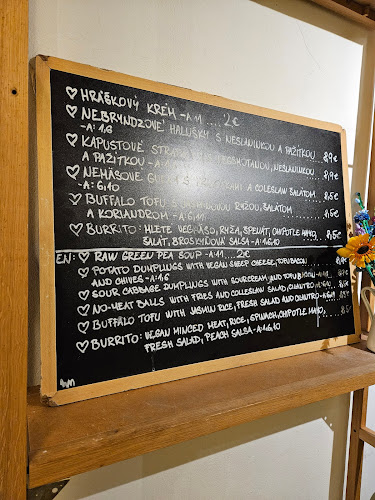 ♡ HRÁŠKOVÝ KRÉM -A:11 .... 2€
♡ NEBRYNDZOVÉ HALUŠKY S NESLANINKOU A PAŽÍTKOU ... 8,9€
-A: 1,6
♡ KAPUSTOVÉ STRAPAČKY S NESMOTANOU, NESLANINKOU
A PAŽÍTKOU -A: 8,9€
♡ NEMÄSOVÉ GULKY S A COLESLAW ŠALÁTOM
-A: 6,10 8,5€
♡ BUFFALO TOFU S JASMÍNOVOU RYŽOU, ŠALÁTOM
A KORIANDROM -A:6,11
♡ BURRITO: MLETÉ VEGMÄSO, RYŽA, ŠPENÁT, CHIPOTLE MAYO,
ŠALÁT, BROSKYŇOVÁ SALSA -A:1,6,10
EN: ♡ RAW GREEN PEA SOUP -A:11.....2€
♡ POTATO DUMPLINGS WITH VEGAN SHEEP CHEESE, TOFU BACON
AND CHIVES -A:1,6
♡ SOUR CABBAGE DUMPLINGS WITH SOURCREAM, AND TOFU BACON
♡ NO-MEAT BALLS WITH FRIES AND COLESLAW SALAD,
♡ BUFFALO TOFU WITH JASMIN RICE, FRESH SALAD AND CILANTRO
♡ BURRITO: VEGAN MINCED MEAT, RICE, SPINACH, CHIPOTLE MAYO,
FRESH SALAD, PEACH SALSA -A:1,6,10